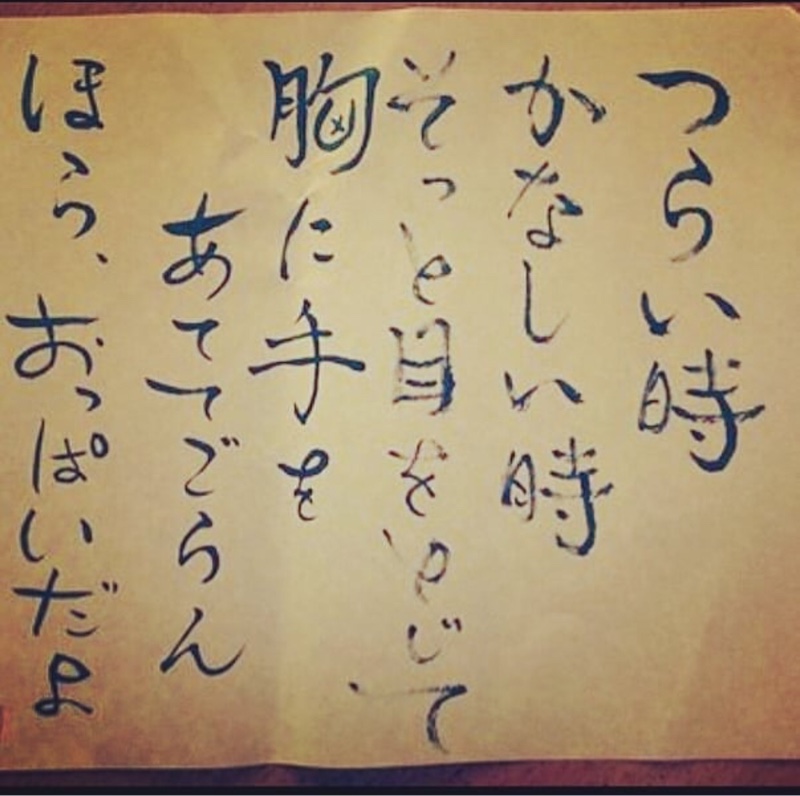 つらい時
かなしい時
そっと目をとじて
胸に手を
あててごらん
ほら、おっぱいだよ